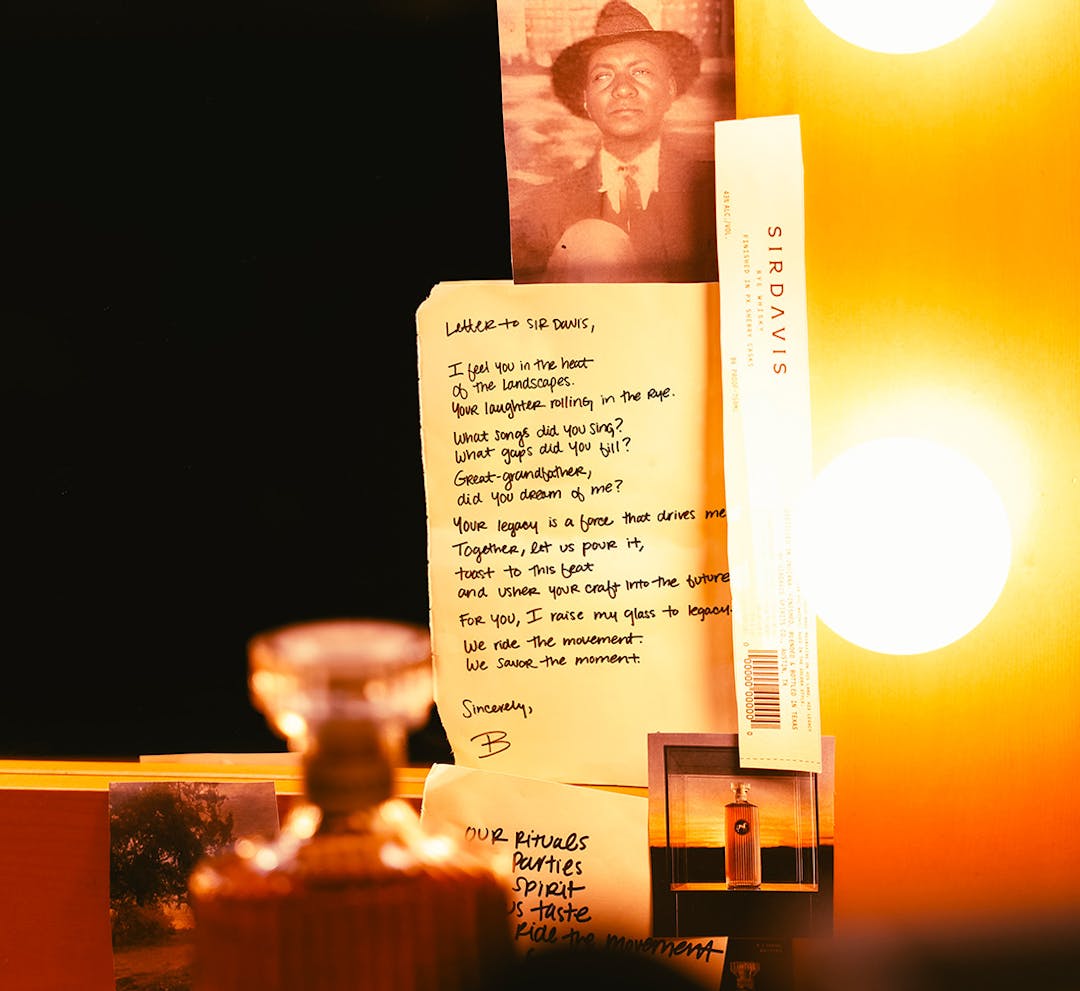 Letter to SIR DAVIS,
I feel you in the heat
of the Landscapes.
Your laughter rolling in the Rye.
What songs did you sing?
What gaps did you fill?
Great-grandfather,
did you dream of me?
Your legacy is a force that drives me
Together, let us pour it,
toast to this feat
and usher your craft into the future
For you, I raise my glass to legacy.
We ride the movement.
We savor the moment.
Sincerely,
B
SIRDAVIS
RYE WHISKY
FINISHED IN PX SHERRY CASKS
OUR Rituals
Parties
Spirit
us taste
Ride the movement